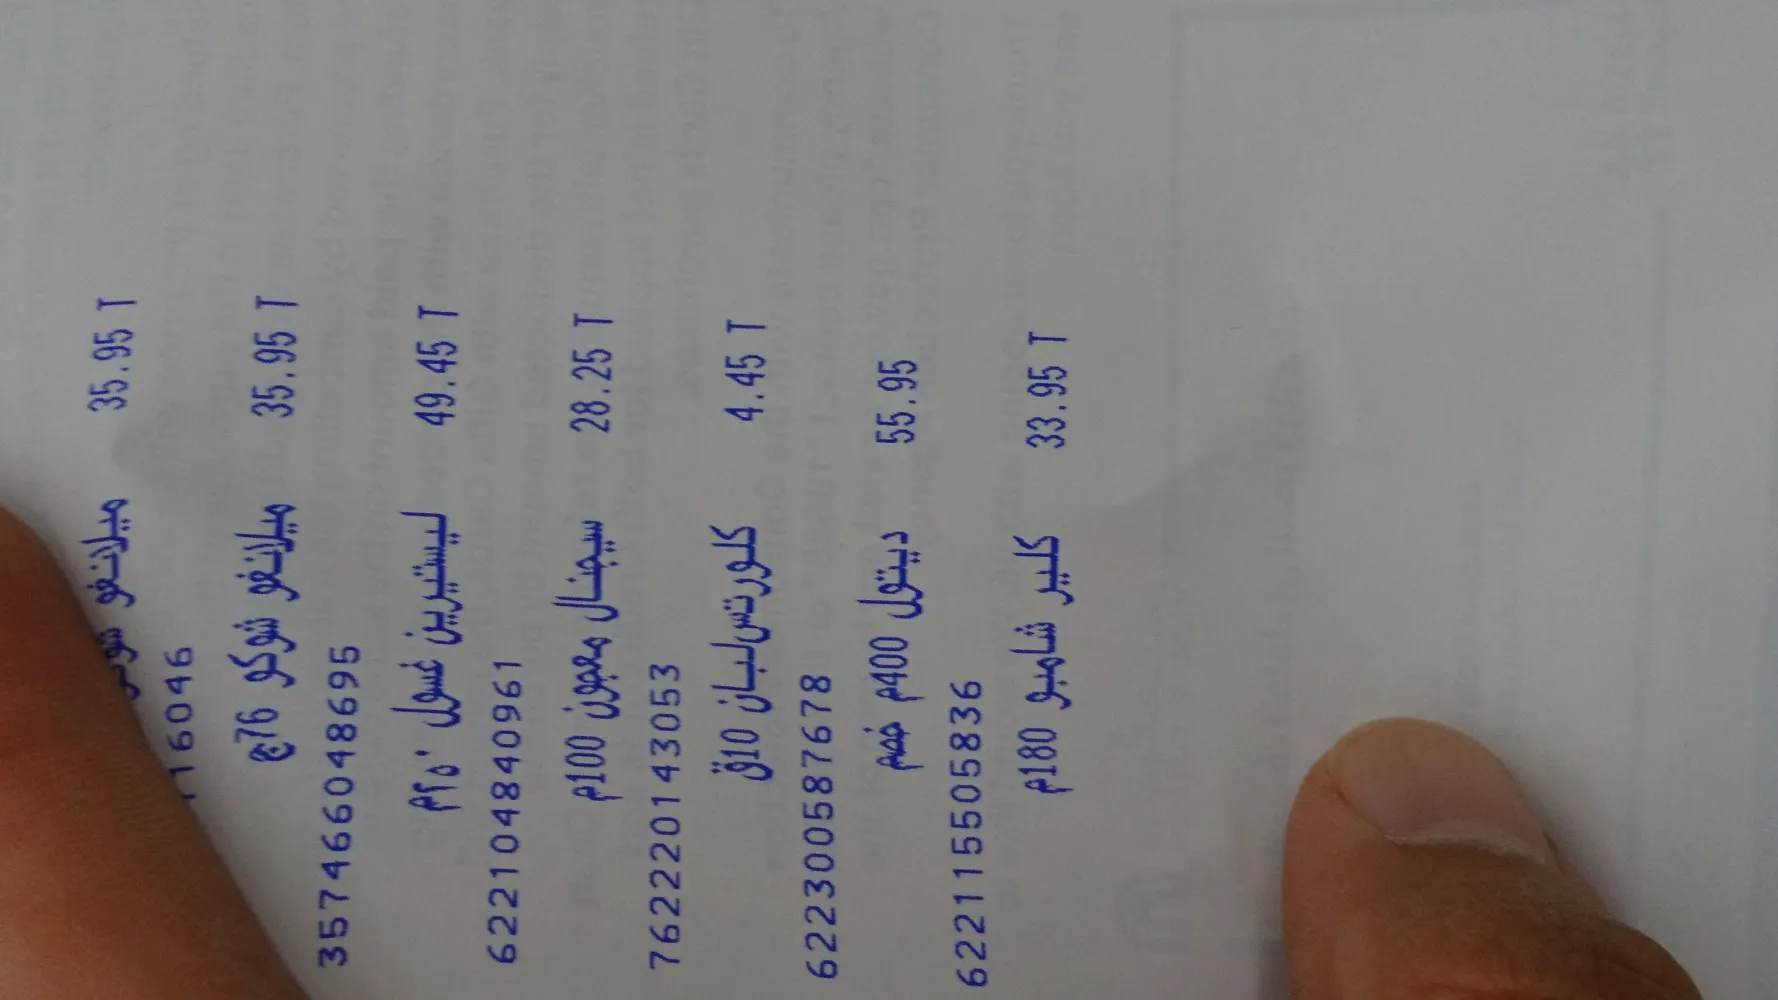 ميلانغو 35.95 T
16046
ميلانغو شوكو 76ج 35.95 T
3574660048695
ليستيرين غسول ٢٥٠م 49.45 T
6221048840961
سيجنال معجون 100م 28.25 T
7622201143053
كلورتس لبان 10ق 4.45 T
6223005876878
ديتول 400م خصم 55.95
6221155058836
كلير شامبو 180م 33.95 T